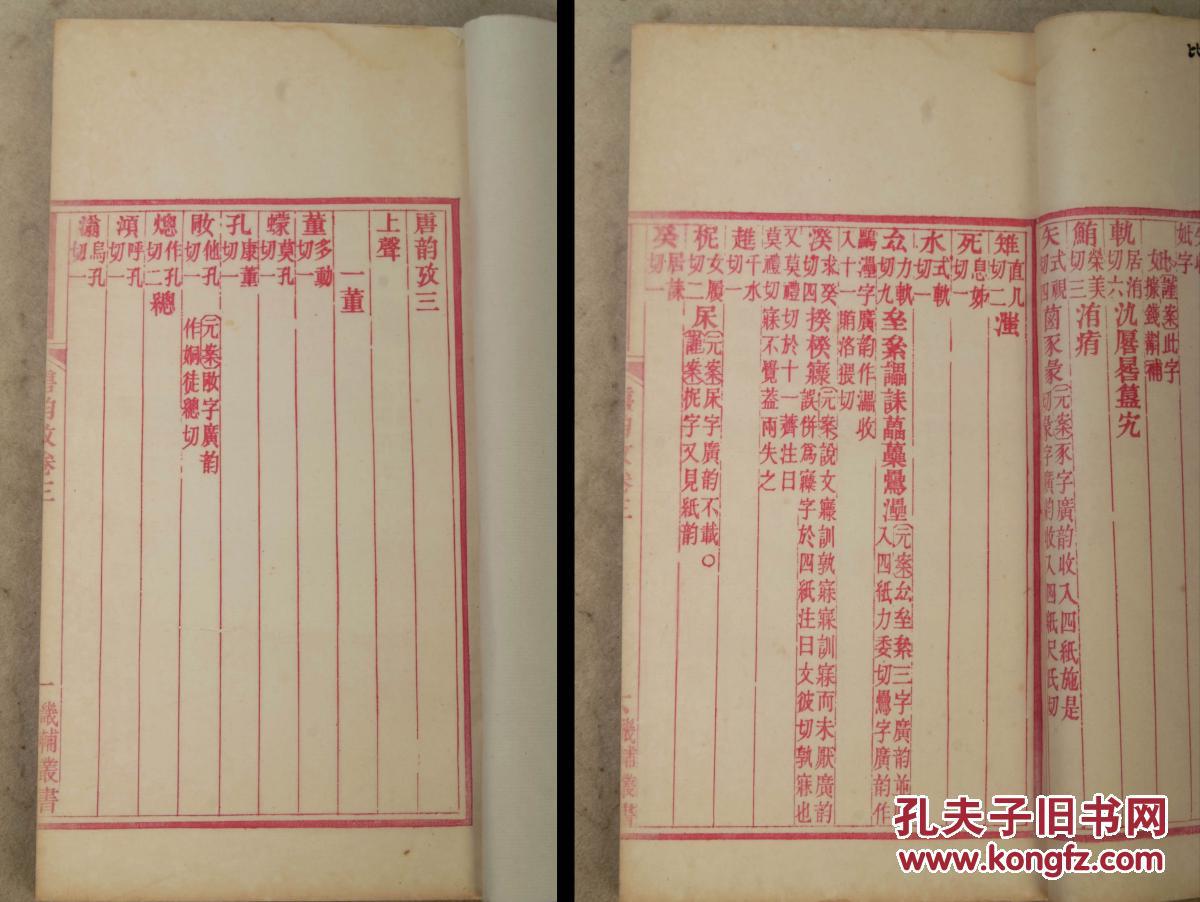 唐韵攷三
上聲
一董
董多動切一
蠓莫孔切一
孔康董切一
㪌他孔切一
元案㪌字廣韵
作姛徒總切
熜作孔切二緫
澒呼孔切一
滃烏孔切一
唐韵攷卷三
一
畿輔叢書
比
妣字
謹案此字
女據錢
補
軌居洧切六氿厬晷簋宄
鮪榮美切三洧痏
矢式視切四菌豕彖
元案豕字廣韵收入四紙施是
切彖字廣韵收入四紙尺氏切
雉直几切二滍
死息姊切一
水式軌切一
厽力軌切九垒絫讄誄藟蘽鸓灅
元案厽垒絫三字廣韵並
入四紙力委切鸓字廣韵作
鸓灅字廣韵作灅收
入十一賄洛猥切
湀求癸切四揆楑㝥
元案說文㝥訓孰寐寱訓寐而未厭廣韵
誤併爲㝥字於四紙注曰文彼切孰寐也
又莫禮切於十一薺注曰
莫禮切寐不覺葢兩失之
趡千水切一
柅女履切二㞙
元案㞙字廣韵不載○
謹案柅字又見紙韵
癸居誄切一
畿輔叢書
孔夫子旧书网
www.kongfz.com